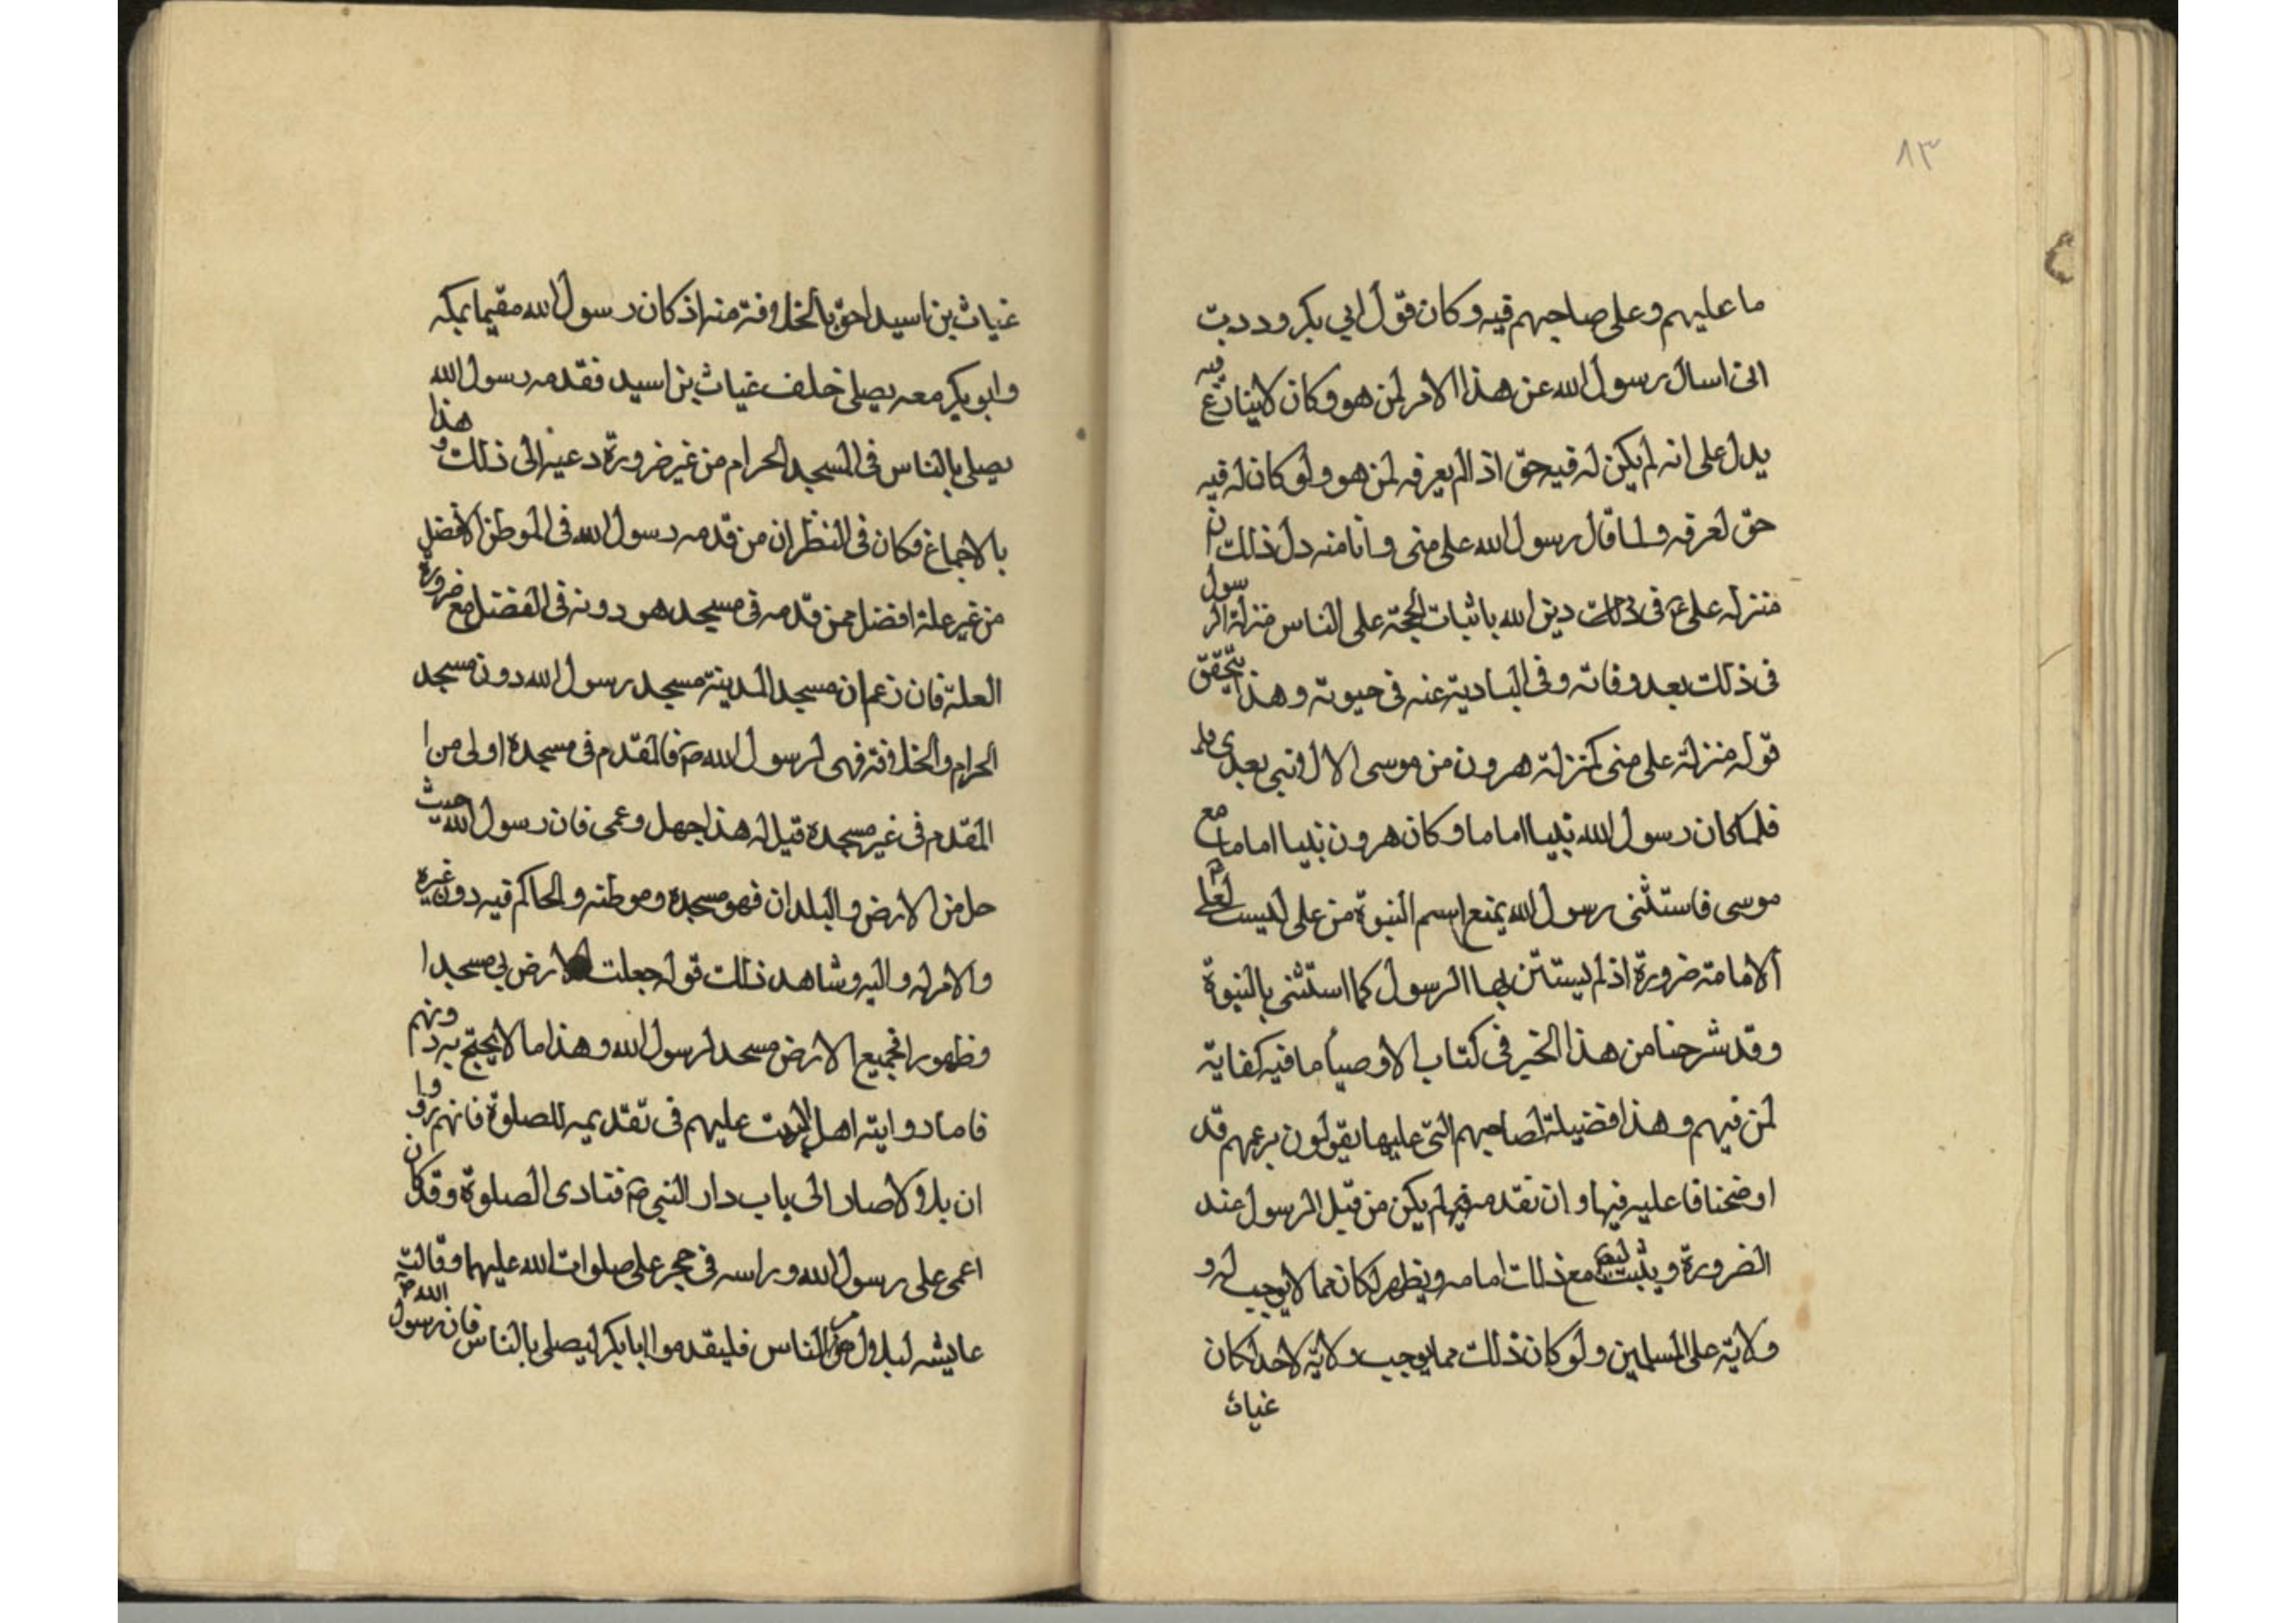 ٨٣
ما عليهم وعلى صاحبهم فيه وكان قول ابي بكر وددت
انى اسال رسول الله عن هذا الامر لمن هو وكان لا ينازع فيه
يدل على انه لم يكن له فيه حق اذ الم يعرفه لمن هو ولو كان له فيه
حق لعرفه ولما قال رسول الله على منى وانا منه دل ذلك ان
منزله على ع فى ذلك دين الله باثبات الحجة على الناس منزلة الرسول
فى ذلك بعد وفاته وفى التادية عنه فى حيوته وهذا يتحقق
قوله منزلة على منى كمنزلة هرون من موسى الا لا نبى بعدى
فلما كان رسول الله نبيا اماما وكان هرون نبيا اماما مع
موسى فاستثنى رسول الله يمنع اسم النبوة من على لیست لعلى
الامامة ضرورة اذ لم يستثن بها الرسول كما استثنى بالنبوة
وقد شرحنا من هذا الخبر فى كتاب الاوصيا ما فيه كفاية
لمن فهم وهذا فضيلة لصاحبهم التى عليها يقولون بزعمهم قد
اوضحنا فا عليه فيها وان تقدمه فيها لم يكن من قبل الرسول عند
الضرورة ويثبت مع ذلك امامه ويظهر لكان مما لا يوجب له و
ولاية على المسلمين ولو كان ذلك مما يوجب ولاية لاحد لكان
غياث
غياث بن اسيد احق بالخلافة منه اذ كان رسول الله مقيما بمكه
وابو بكر معه يصلى خلف غياث بن اسيد فقدمه رسول الله
يصلى بالناس فى المسجد الحرام من غير ضرورة دعته الى ذلك وهذا
بالاجماع وكان فى النظر ان من قدمه رسول الله فى الموطن الافضل
من غير علة افضل ممن قدمه فى مسجد هو دونه فى الفضل مع ضرورة
العلة فان زعم ان مسجد المدينة مسجد رسول الله دون مسجد
الحرام والخلافة فهى لرسول الله ص فالمقدم فى مسجده اولى من ا
المقدم فى غير مسجده قيل له هذا جهل وعمى فان رسول الله حيث
حل من الارض والبلدان فهو مسجده وموطنه والحاكم فيه دون غيره
والامر له واليه وشاهد ذلك قوله جعلت الارض لى مسجدا
وطهورا فجميع الارض مسجد لرسول الله وهذا ما لا يحتج به
فاما رواية اهل البيت عليهم فى تقديمه للصلوة فانهم رووا
ان بلالا صار الى باب دار النبى ص فنادى الصلوة وقد كان
اغمى على رسول الله وراسه فى حجر على صلوات الله عليهما وقالت
عايشه لبلال من الناس فليقدموا ابا بكر ليصلى بالناس فان رسول الله ص